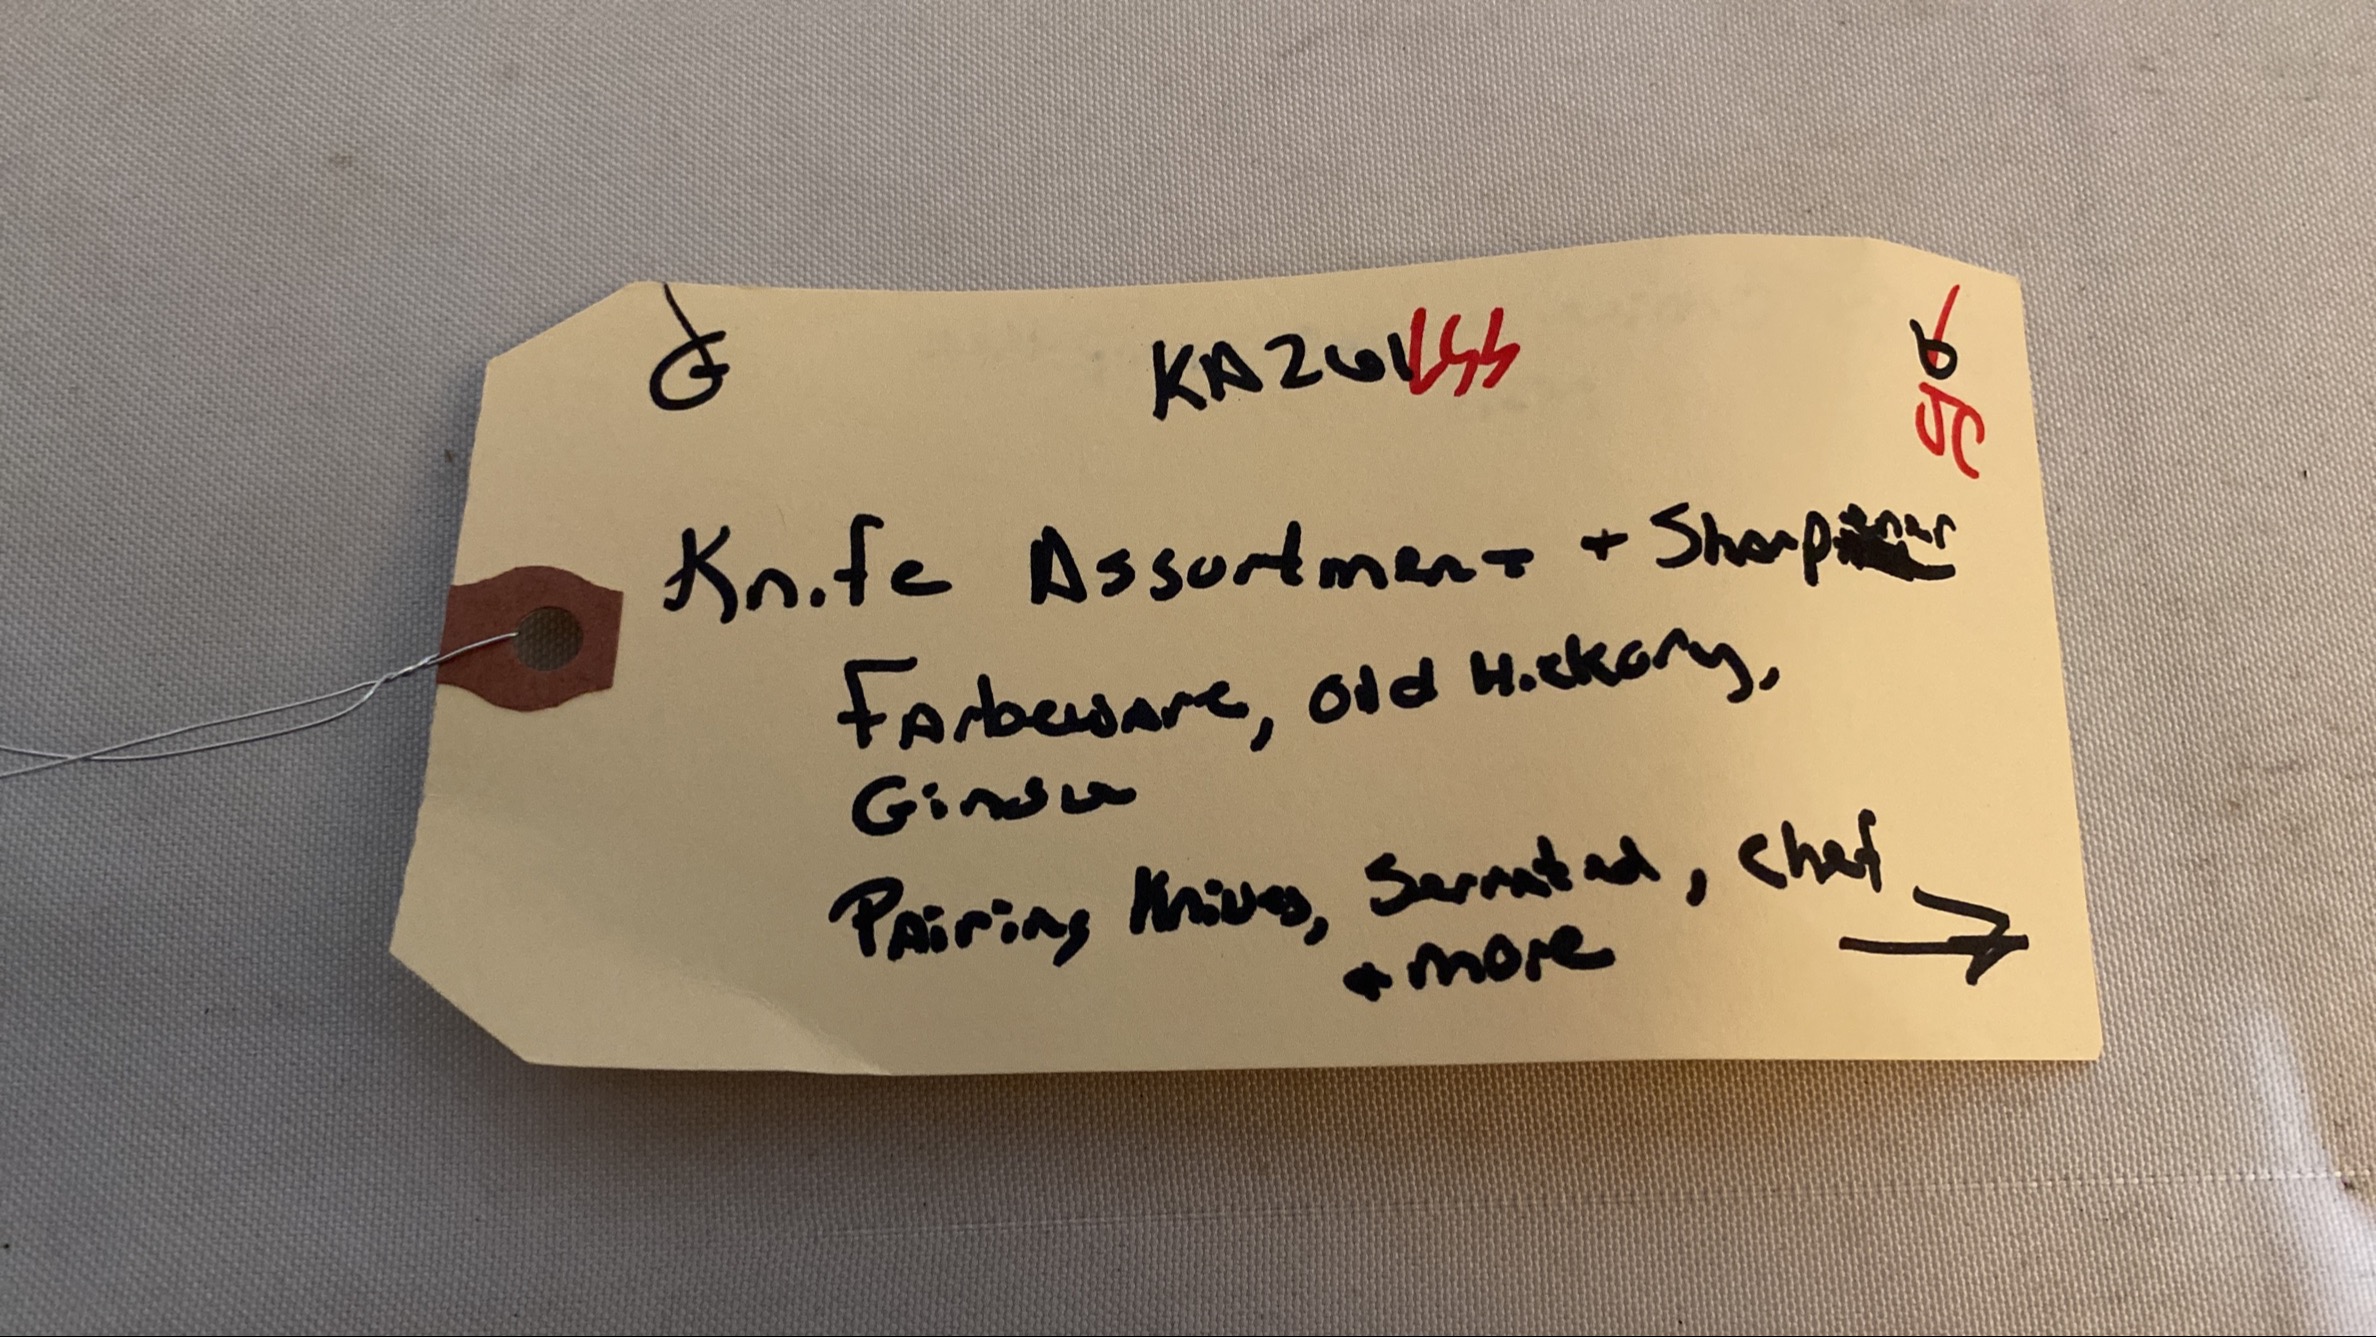 KA261
Knife Assortment + Sharpener
Farberware, Old Hickory,
Ginsu
Pairing Knives, Serrated, Chef
+ more